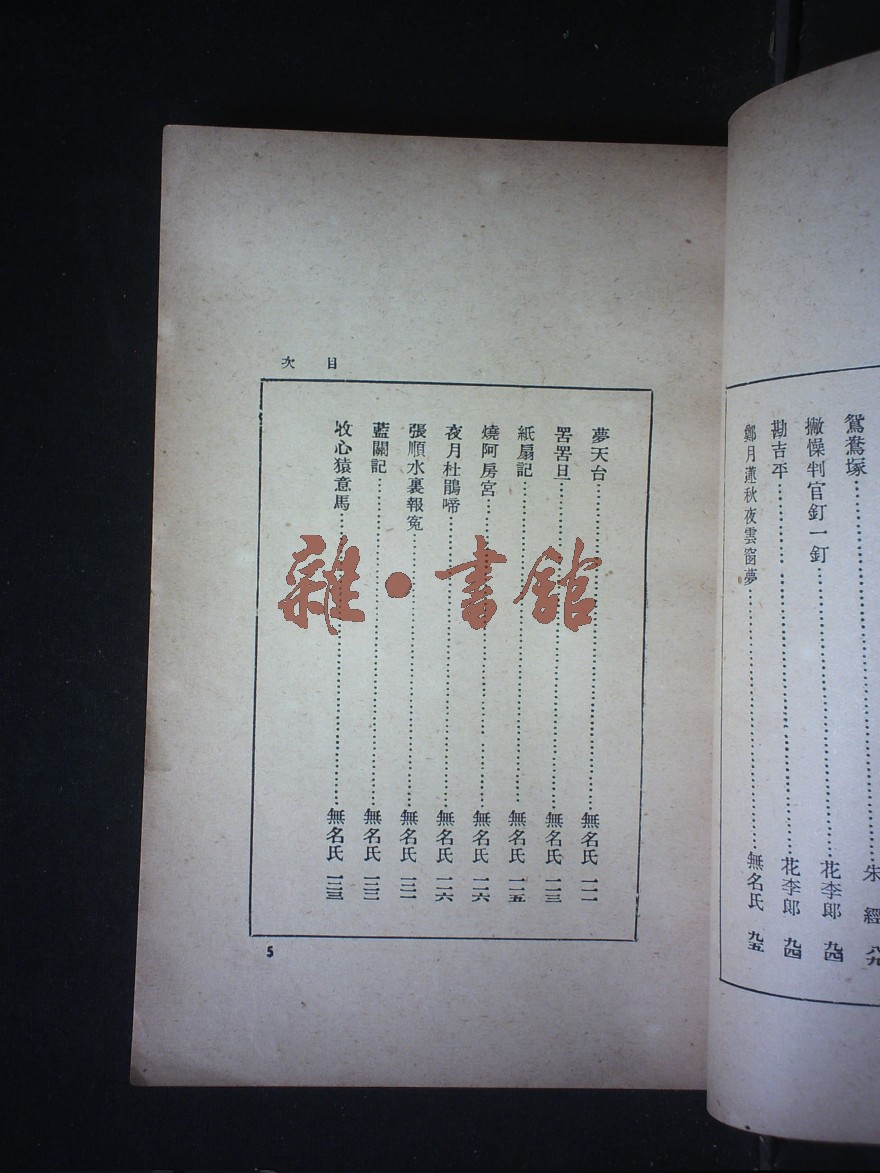 鴛鴦塚……朱經 八九
撇懆判官釘一釘……花李郎 九四
勘吉平……花李郎 九四
鄭月蓮秋夜雲窗夢……無名氏 九五
目次
夢天台……無名氏 一一一
罟罟旦……無名氏 一一三
紙扇記……無名氏 一一五
燒阿房宮……無名氏 一一六
夜月杜鵑啼……無名氏 一一六
張順水裏報冤……無名氏 一二一
藍關記……無名氏 一二二
收心猿意馬……無名氏 一二三
5
雜·書館